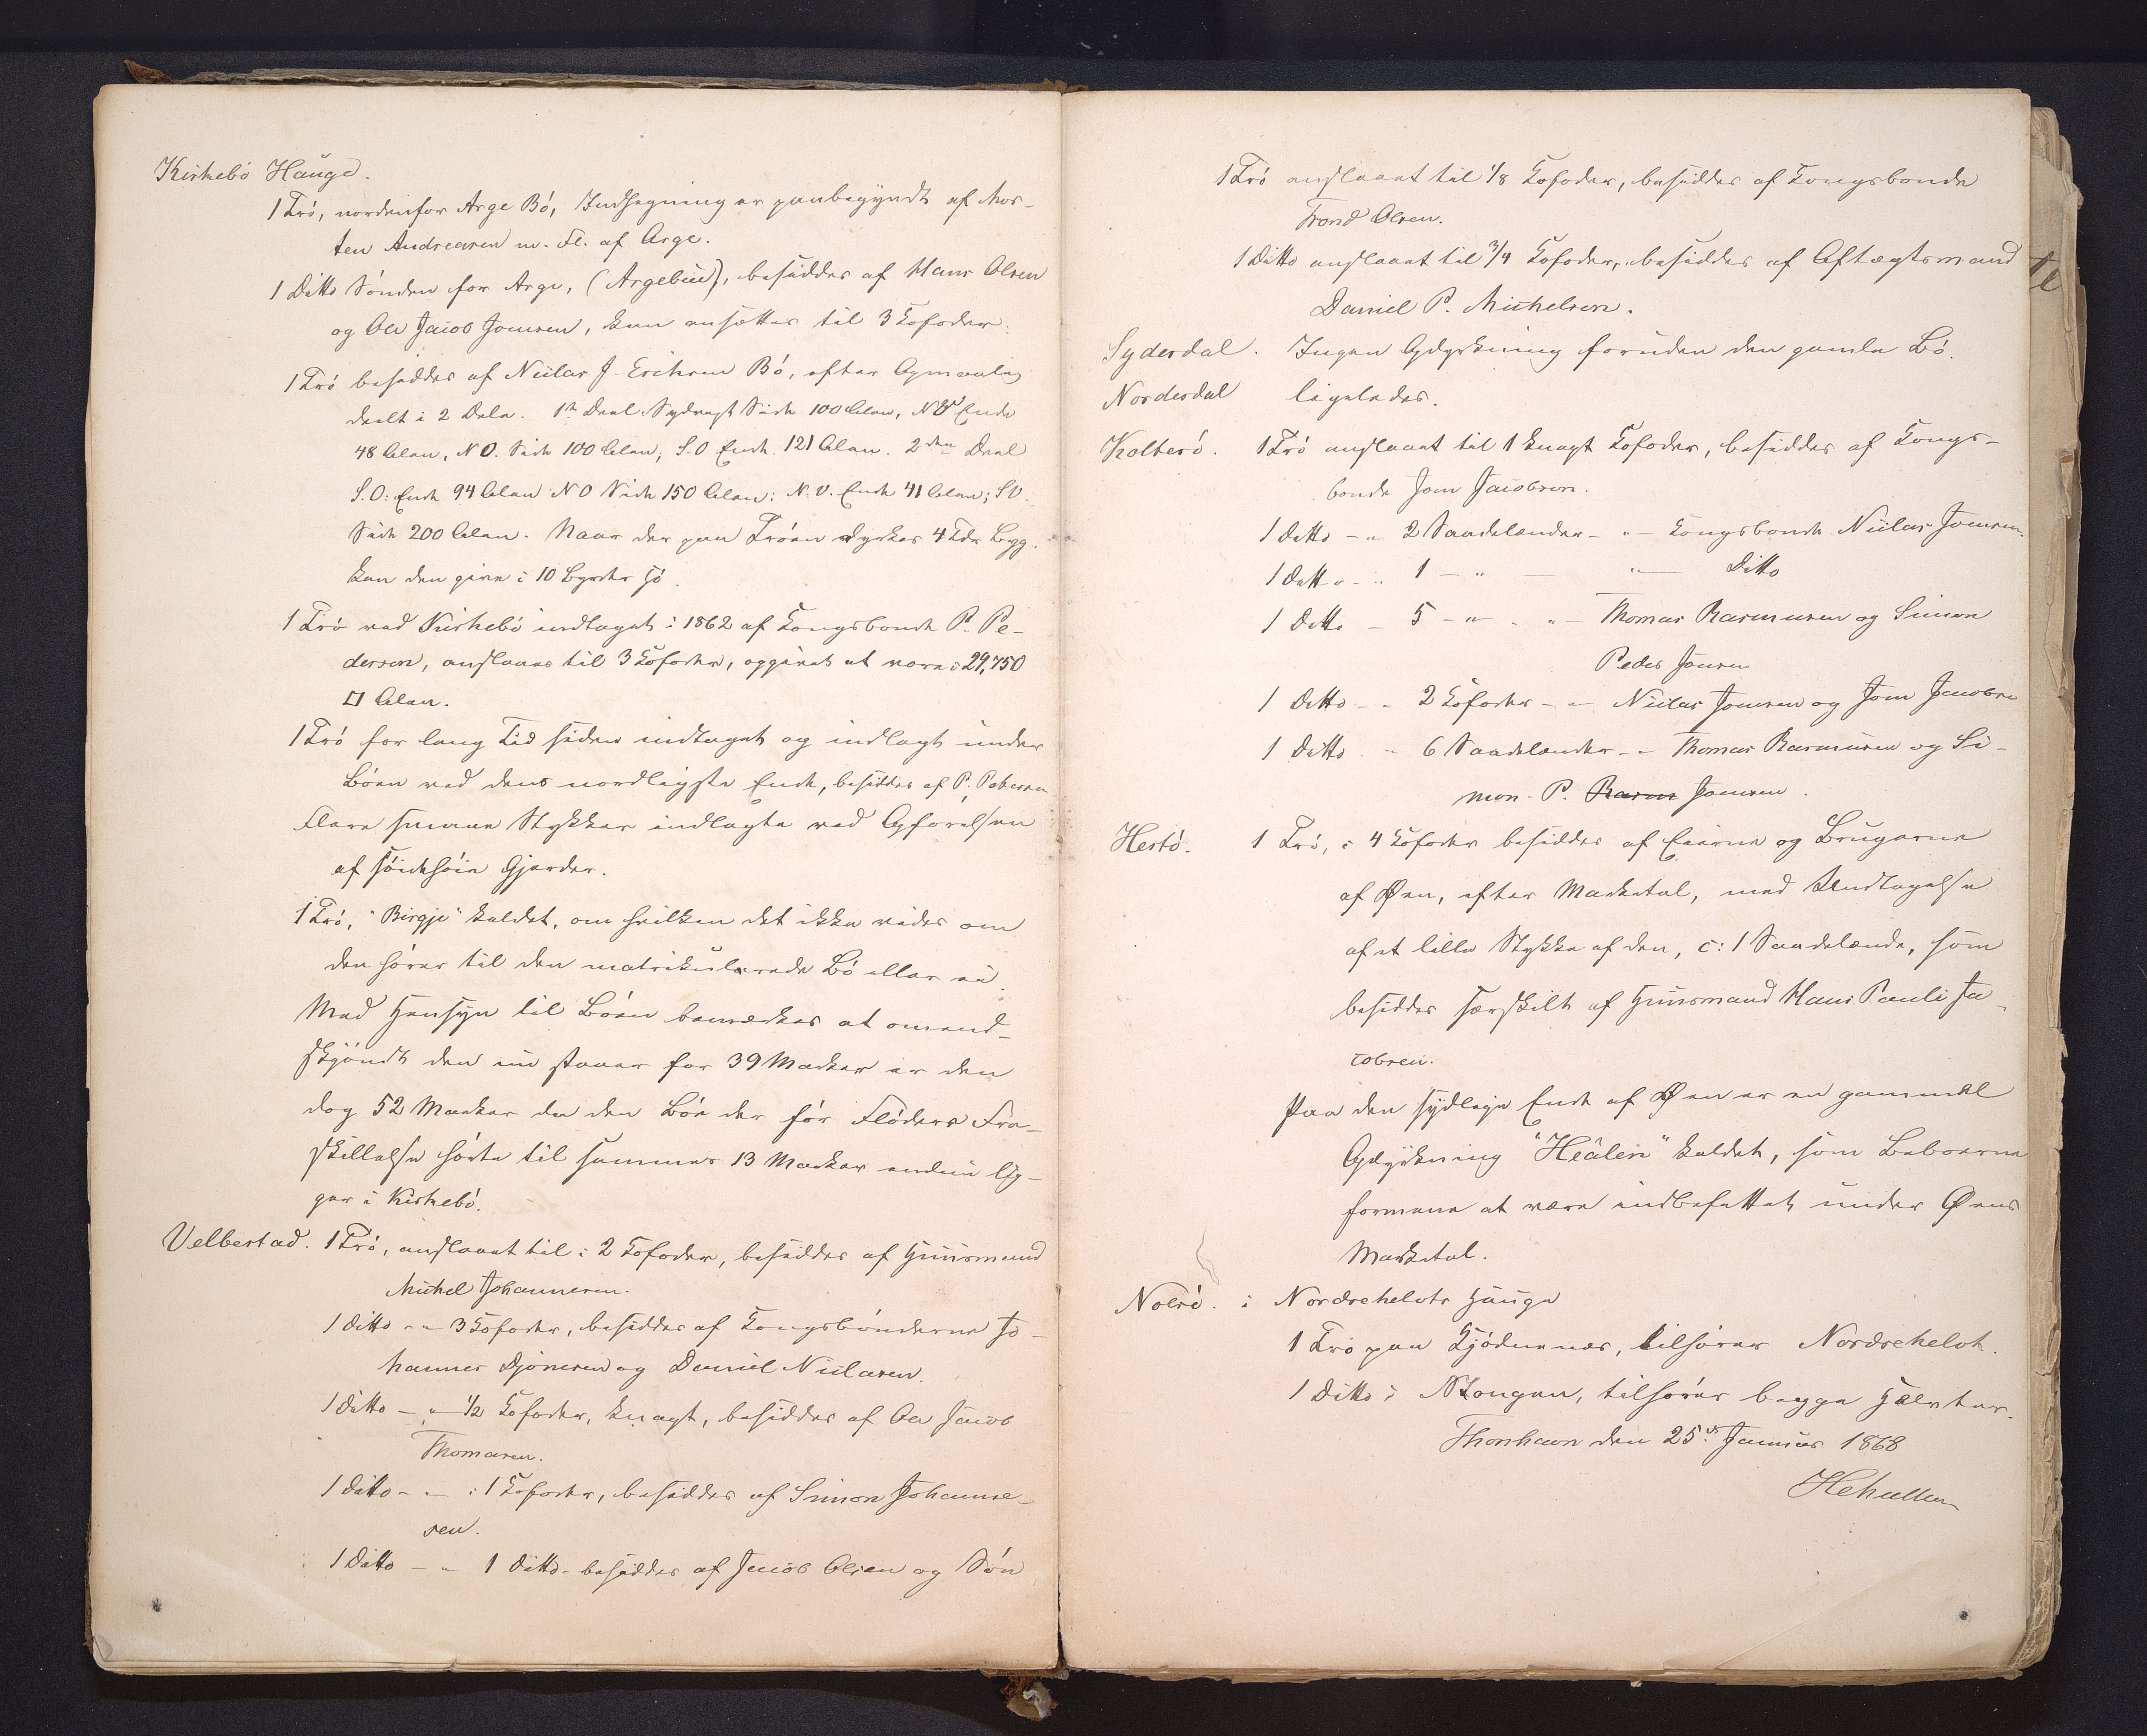 Kirkebö Hauge.
1 Trö, nordenfor Arge Bö, Indhegning er paabegyndt af Mor-
ten Andreasen m. Fl. af Arge.
1 Ditto Sönden for Arge, (Argebud), besiddes af Hans Olsen
og Ole Jacob Joensen, kan ansættes til 3 Kofoder.
1 Trö besiddes af Niclas J. Erichsen Bö, efter Opmaaling
deelt i 2 Dele. 1ste Deel Sydvest Side 100 Alen, NV Ende
48 Alen, NO. Side 100 Alen, S.O Ende 121 Alen. 2den Deel
S.O: Ende 94 Alen NO Side 150 Alen: N.V. Ende 41 Alen; SV.
Side 200 Alen. Naar der paa Tröen dyrkes 4 Tdr Byg.
kan den give i 10 Byrder Hö.
1 Trö ved Kirkebö indtaget i 1862 af Kongsbonde P. Pe-
dersen, anslaaes til 3 Kofoder, opgivet at være 29,750
□ Alen.
1 Trö for lang Tid siden indtaget og indlagt under
Böen ved dens nordligste Ende, besiddes af P. Petersen
Flere smaae Stykker indlagte ved Opförelsen
af Gjerder.
1 Trö, "Birgje" kaldet, om hvilken det ikke vides om
den hörer til den matrikulerede Bö eller ei.
Med Hensyn til Böen bemærkes at omend-
skjöndt den nu staaer for 39 Marker er den
dog 52 Marker da den Böe der för Flöders Fra-
skillelse hörte til sammes 13 Marker endnu lig-
ger i Kirkebö.
Velbestad. 1 Trö, anslaaet til: 2 Kofoder, besiddes af Huusmand
Michel Johannesen.
1 ditto - " - 3 Kofoder, besiddes af Kongsbönderne Jo-
hannes Djonesen og Daniel Niclasen.
1 ditto - " - ½ Kofoder, knagt, besiddes af Ole Jacob
Thomasen.
1 ditto - " - : 1 Kofoder, besiddes af Simon Johanne-
sen.
1 Ditto - " 1 Ditto - besiddes af Jacob Olsen og Sön
1 Trö anslaaet til 1/8 Kofoder, besiddes af Kongsbonde
Trond Olsen.
1 Ditto anslaaet til 3/4 Kofoder, besiddes af Aftægtsmand
Daniel P. Michelsen.
Syderdal. Ingen Opdyrkning foruden den gamle Bö.
Norderdal ligeledes.
Kolterö. 1 Trö anslaaet til 1 knagt Kofoder, besiddes af Kongs-
bonde Joen Jacobsen.
1 Ditto - " 2 Saadelænder - " - Kongsbonde Niclas Joensen.
1 Ditto - " 1 - " - " - Ditto
1 Ditto - 5 - " - " - Thomas Rasmusen og Simon
Peder Joensen
1 Ditto - " 2 Kofoder - " - Niclas Joensen og Joen Jacobse
1 Ditto - " 6 Saadelænder - " Thomas Rasmusen og Si-
mon P. Rasm Joensen.
Hestö. 1 Trö, i 4 Kofoder besiddes af Eierne og Brugerne
af Øen, efter Marketal, med Undtagelse
af et lille Stykke af den, c: 1 Saadelænde, som
besiddes særskilt af Huusmand Hans Pauli Ja-
cobsen.
Paa den sydlige Ende af Øen er en gammel
Opdyrkning "Heâlen" kaldet, som Beboerne
formene at være indbefattet under Øens
Marketal.
Nolsö. i Nordrehelvts Hauge
1 Trö paa Kjödnenæs, tilhörer Nordrehelvt.
1 Ditto i Stongen, tilhörer begge Helvter.
Thorshavn den 25de Januar 1868